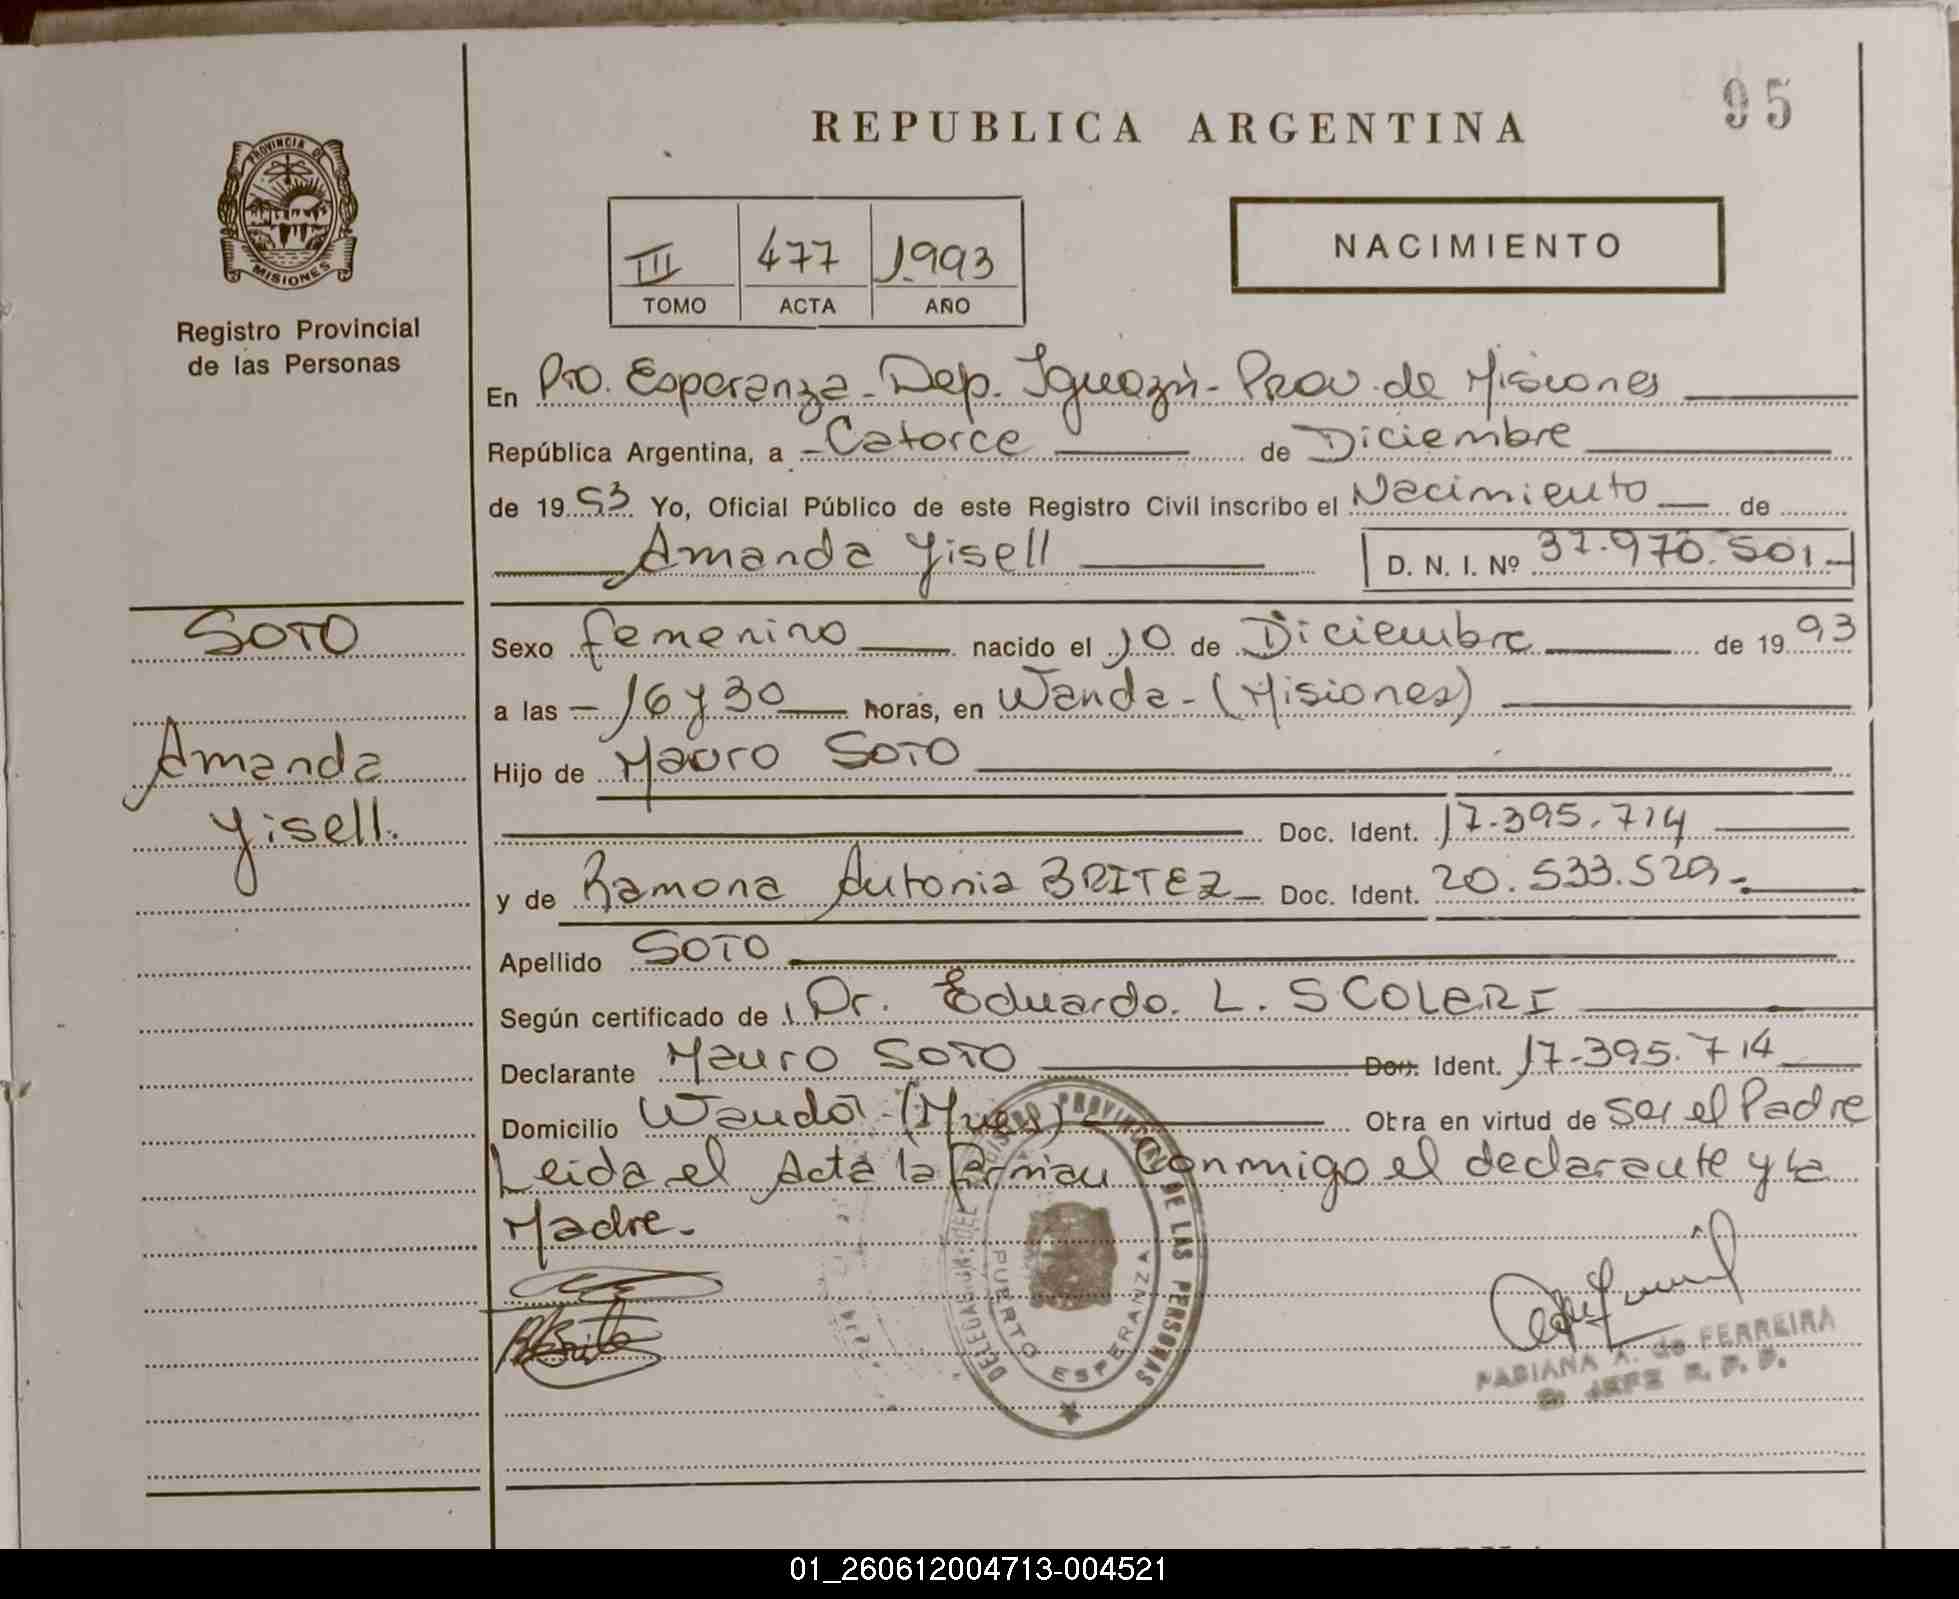 95
REPUBLICA ARGENTINA
PROVINCIA DE
MISIONES
Registro Provincial
de las Personas
III 477 1993
TOMO ACTA AÑO
NACIMIENTO
En Pto. Esperanza - Dep. Iguazú - Prov. de Misiones
República Argentina, a - Catorce de Diciembre
de 1993 Yo, Oficial Público de este Registro Civil inscribo el Nacimiento de
Amanda Yisell D. N. I. Nº 37.970.501.-
SOTO
Amanda
Yisell.
Sexo femenino nacido el 10 de Diciembre de 1993
a las - 16 y 30 horas, en Wanda - (Misiones)
Hijo de Mauro SOTO
Doc. Ident. 17.395.714
y de Ramona Antonia BRITEZ Doc. Ident. 20.533.529.-
Apellido SOTO
Según certificado de Dr. Eduardo. L. SCOLERI
Declarante Mauro SOTO Doc. Ident. 17.395.714
Domicilio Wanda - (Mnes) Obra en virtud de ser el Padre
Leida el Acta la firman conmigo el declarante y la
Madre.-
DELEGACION DEL REGISTRO PROVINCIAL DE LAS PERSONAS
PUERTO ESPERANZA
FABIANA A. de FERREIRA
JEFE R. P. P.
01_260612004713-004521